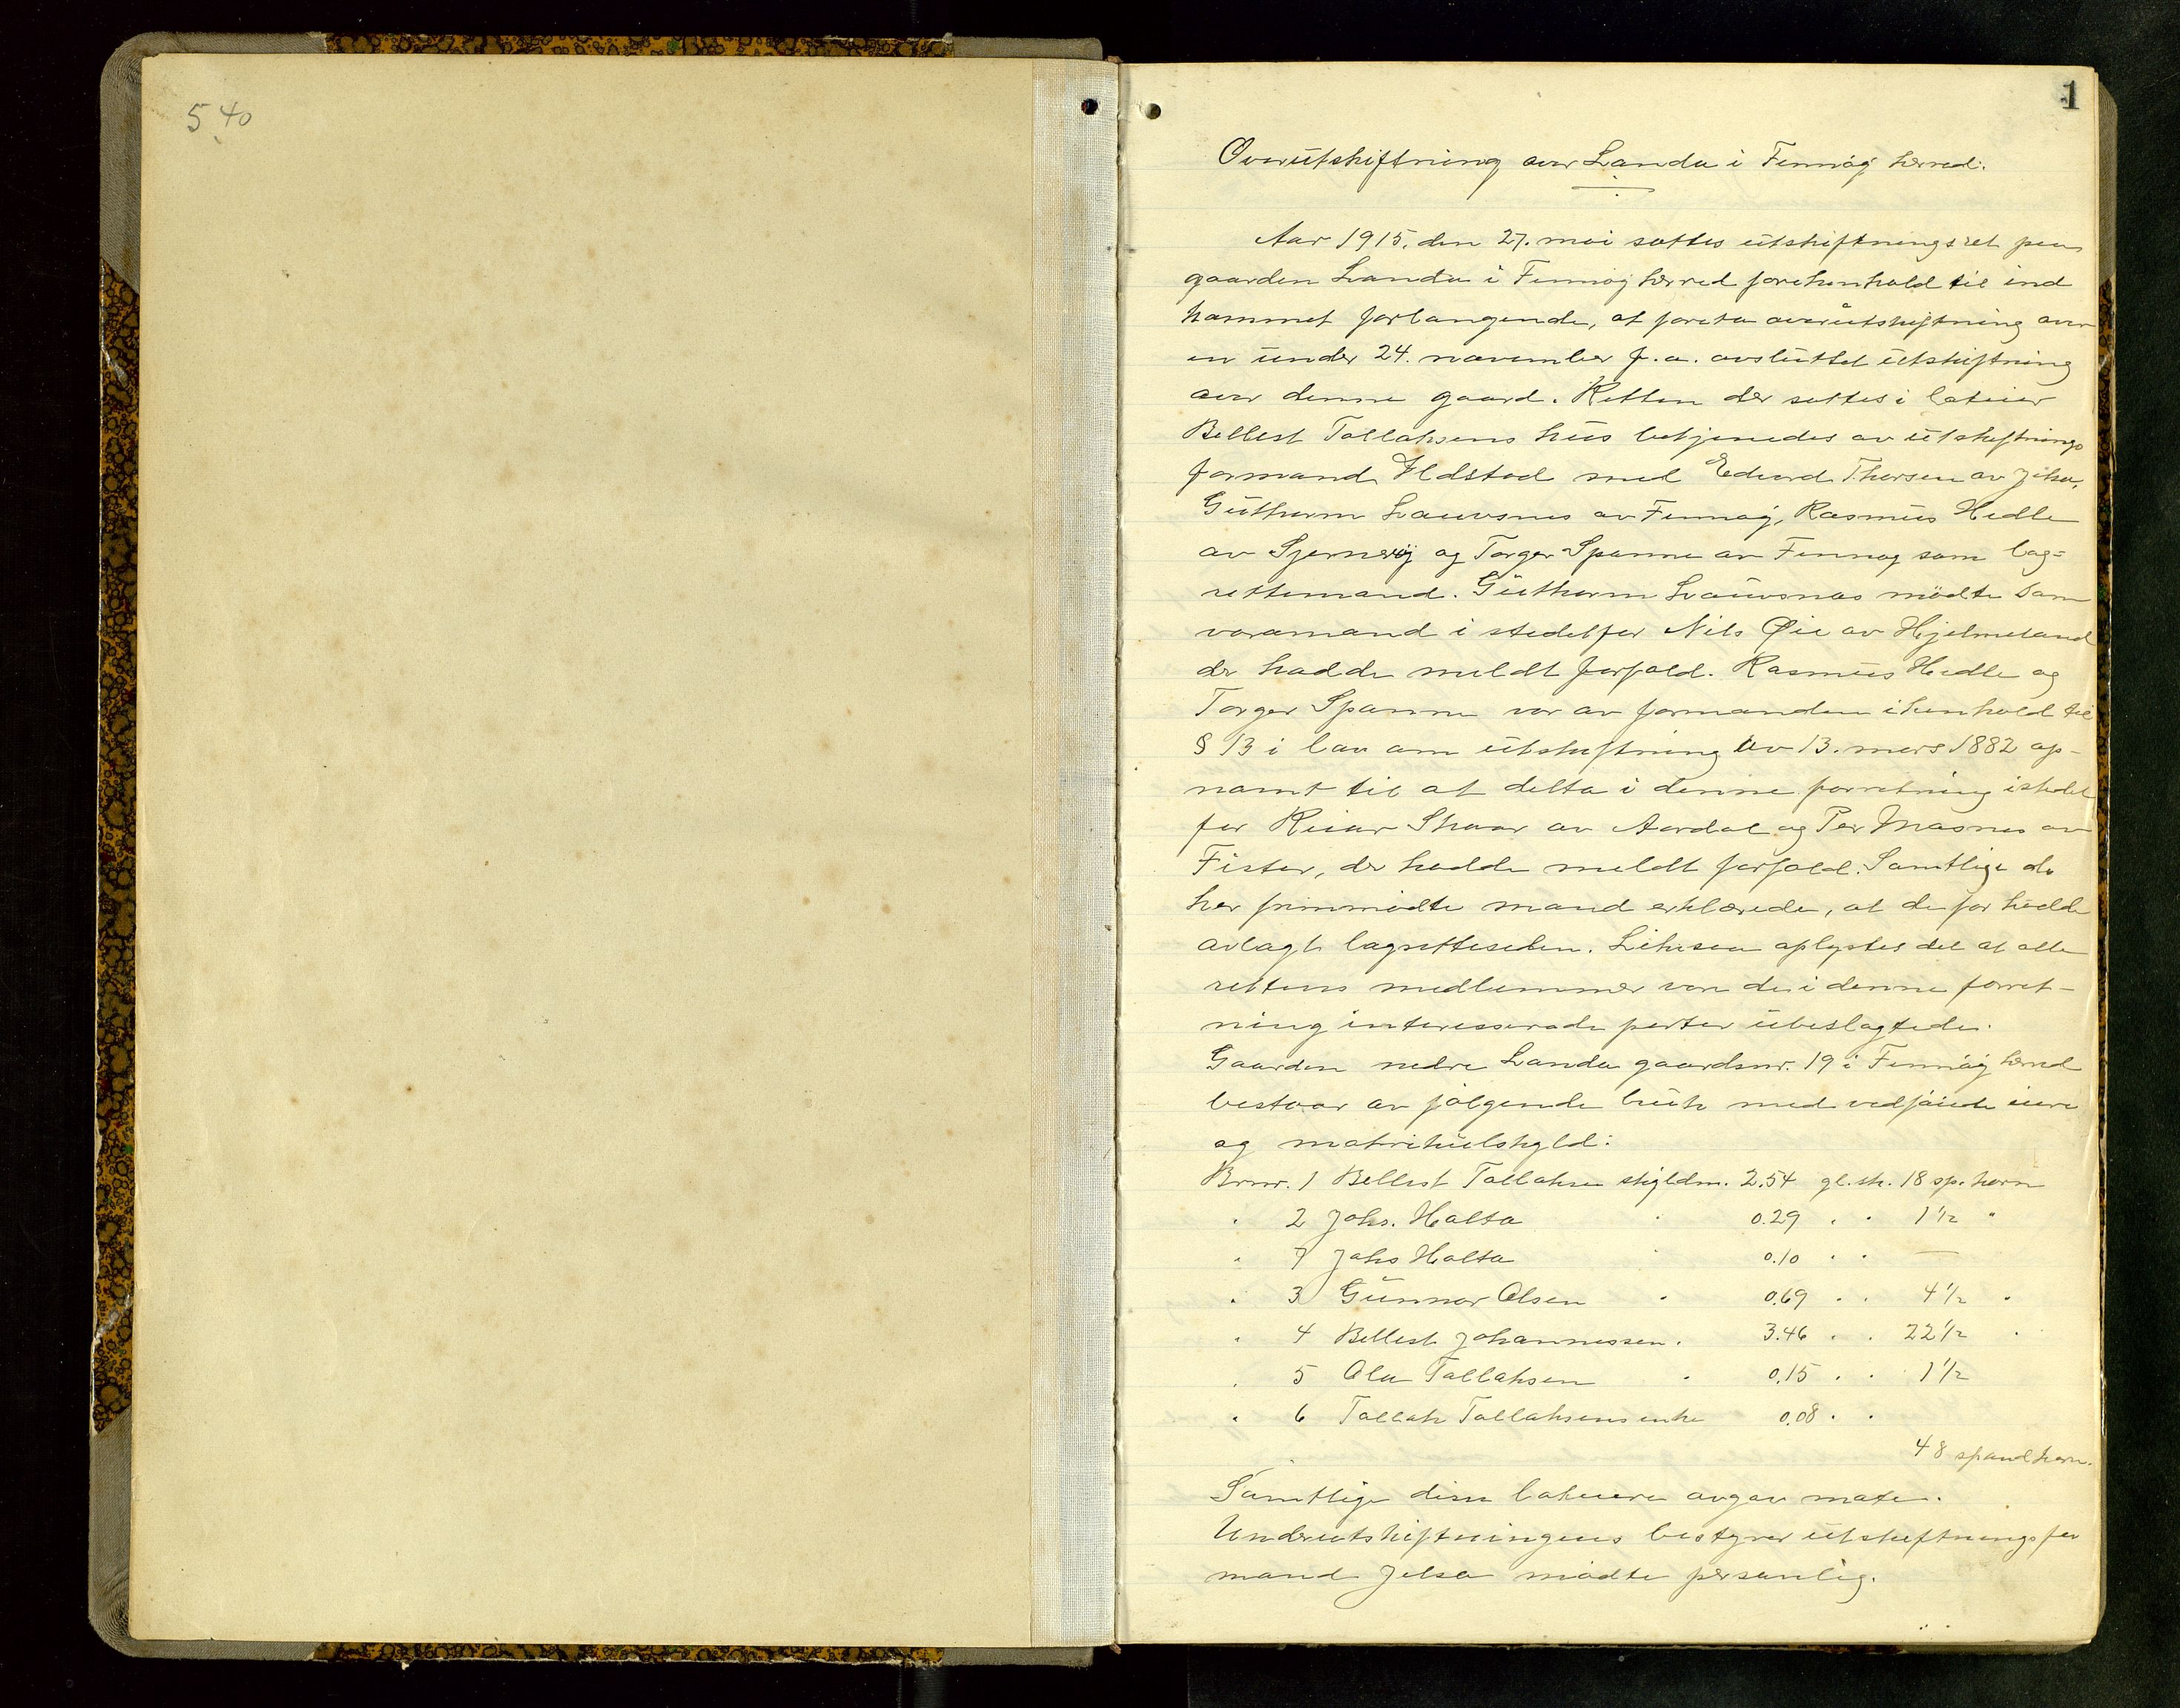 5 40
1
Overutskiftning over Landa i Finnøy herred.
Aar 1915, den 27. mai sattes utskiftningsret paa
gaarden Landa i Finnøy herred i henhold til ind
kommet forlangende, at foreta overutskiftning over
en under 24. november f. a. avsluttet utskiftning
over denne gaard. Retten der sattes i lateier
Bellest Tollaksens hus betjenedes av utskiftnings
formand Uldstad med Edvard Thorsen av Jelsa,
Guthorm Lauvsnes av Finnøy, Rasmus Hedle
av Sjernerøy og Torger Spanne av Finnøy som lag=
rettemænd. Guthorm Lauvsnes mødte som
varamand i stedetfor Nils Øie av Hjelmeland
der hadde meldt forfald. Rasmus Hedle og
Torger Spanne var av formanden i henhold til
§ 13 i lov om utskiftning av 13. mars 1882 op-
nævnt til at delta i denne forretning istedet
for Reiar Skaar av Aardal og Per Masnes av
Fister, der hadde meldt forfald. Samtlige de
her fremmødte mænd erklærede, at de før hadde
avlagt lagretteseden. Likesaa oplystes det at alle
rettens medlemmer var de i denne forret-
ning interesserade parter ubeslagtede.
Gaarden nedre Landa gaardsnr. 19 i Finnøy herred
bestaar av følgende bruk med vedføiede eiere
og matrikulskyld:
Brnr. 1 Bellest Tollaksen skyldm. 2.54 gl. sk. 18 sp. korn
" 2 Johs. Halta " 0.29 " " 1 1/2 "
" 7 Johs Halta " 0.10 " " —
" 3 Gunnar Olsen " 0.69 " " 4 1/2 "
" 4 Bellest Johannessen " 3.46 " " 22 1/2 "
" 5 Ola Tollaksen " 0.15 " " 1 1/2
" 6 Tollak Tollaksens enke 0.08 " "
48 spand korn.
Samtlige disse lateiere avgav møte.
Underutskiftningens bestyrer utskiftningsfor
mand Jelsa mødte personlig.